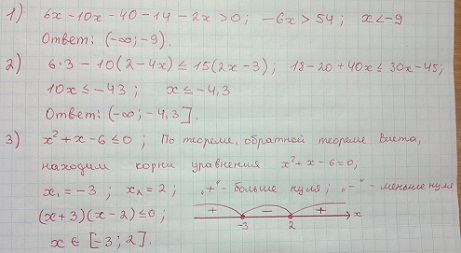 1) 6x - 10x - 40 - 14 - 2x > 0 ; -6x > 54 ; x < -9
Ответ: (-∞; -9).
2) 6·3 - 10(2 - 4x) ≤ 15(2x - 3) ; 18 - 20 + 40x ≤ 30x - 45 ;
10x ≤ -43 ; x ≤ -4,3
Ответ: (-∞; -4,3].
3) x² + x - 6 ≤ 0 ; По теореме, обратной теореме Виета,
находим корни уравнения x² + x - 6 = 0 ;
x₁ = -3 ; x₂ = 2 ; „+“ - больше нуля ; „-“ - меньше нуля
(x + 3)(x - 2) ≤ 0 ; + - + x
-3 2
x ∈ [-3; 2].